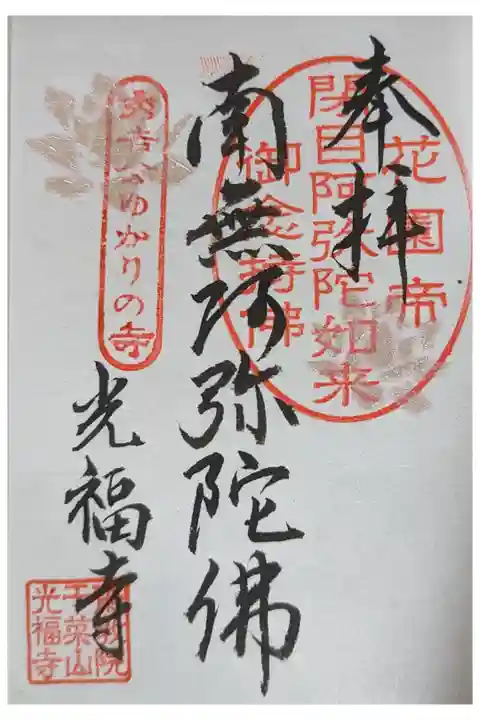 奉拝
花園帝
閉目阿弥陀如来
御念持佛
南無阿弥陀佛
六斎ゆかりの寺
光福寺
干菜山
光福寺